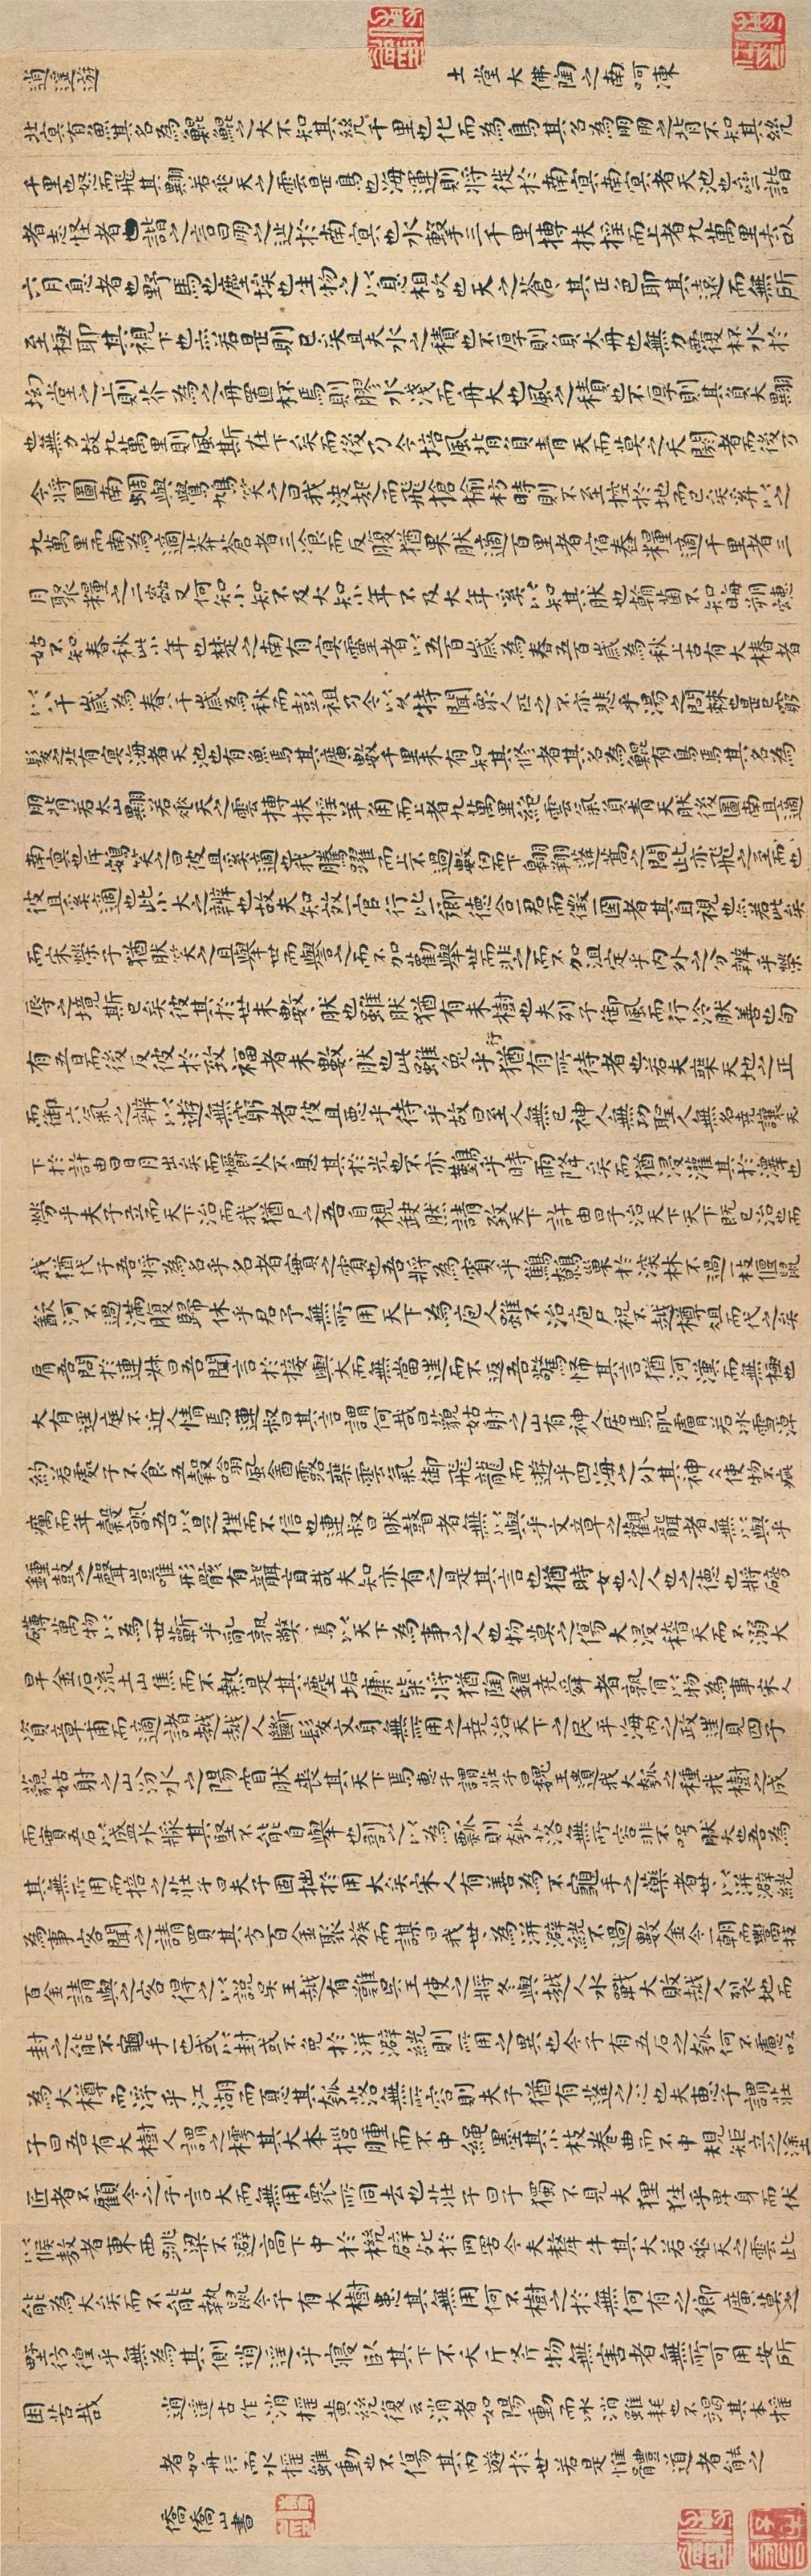 逍遥遊
土堂大佛陶之南呵凍
北冥有魚其名為鯤鯤之大不知其幾千里也化而為鳥其名為鵬鵬之背不知其幾
千里也怒而飛其翼若垂天之雲是鳥也海運則將徙於南冥南冥者天池也齊諧
者志怪者也諧之言曰鵬之徙於南冥也水擊三千里搏扶揺而上者九萬里去以
六月息者也野馬也塵埃也生物之以息相吹也天之蒼〻其正色耶其遠而無所
至極耶其視下也亦若是則已矣且夫水之積也不厚則負大舟也無力覆杯水於
坳堂之上則芥為之舟置杯焉則膠水淺而舟大也風之積也不厚則其負大翼
也無力故九萬里則風斯在下矣而後乃今培風背負青天而莫之夭閼者而後乃
今將圖南蜩與鷽鳩笑之曰我決起而飛搶榆枋時則不至控於地而已矣奚以之
九萬里而南為適莽蒼者三湌而反腹猶果肰適百里者宿舂糧適千里者三
月聚糧之二蟲又何知小知不及大知小年不及大年奚以知其肰也朝菌不知晦朔蟪
蛄不知春秋此小年也楚之南有冥靈者以五百歲為春五百歲為秋上古有大椿者
以八千歲為春八千歲為秋而彭祖乃今以久特聞衆人匹之不亦悲乎湯之問棘也是已窮
髮之北有冥海者天池也有魚焉其廣數千里未有知其修者其名為鯤有鳥焉其名為
鵬背若太山翼若垂天之雲搏扶揺羊角而上者九萬里絕雲氣負青天肰後圖南且適
南冥也斥鴳笑之曰彼且奚適也我騰躍而上不過數仞而下翺翔蓬蒿之間此亦飛之至也而
彼且奚適也此小大之辨也故夫知效一官行比一鄉德合一君而徵一國者其自視也亦若此矣
而宋榮子猶肰笑之且舉世而譽之而不加勸舉世而非之而不加沮定乎内外之分辨乎榮
辱之境斯已矣彼其於世未數〻肰也雖肰猶有未樹也夫列子御風而行泠肰善也旬
有五日而後反彼於致福者未數〻肰也此雖免乎行猶有所待者也若夫乘天地之正
而御六氣之辨以遊無窮者彼且惡乎待乎故曰至人無己神人無功聖人無名堯讓天
下於許由曰日月出矣而爝火不息其於光也不亦難乎時雨降矣而猶浸灌其於澤也
勞乎夫子立而天下治而我猶尸之吾自視缺然請致天下許由曰子治天下天下既已治也而
我猶代子吾將為名乎名者實之賓也吾將為賓乎鷦鷯巢於深林不過一枝偃鼠
飲河不過滿腹歸休乎君予無所用天下為庖人雖不治庖尸祝不越樽俎而代之矣
肩吾問於連叔曰吾聞言於接輿大而無當往而不返吾驚怖其言猶河漢而無極也
大有逕庭不近人情焉連叔曰其言謂何哉曰藐姑射之山有神人居焉肌膚若冰雪淖
約若處子不食五穀吸風飲露乘雲氣御飛龍而遊乎四海之外其神凝使物不疵
癘而年穀熟吾以是狂而不信也連叔曰肰瞽者無以與乎文章之觀聾者無以與乎
鐘鼓之聲豈唯形骸有聾盲哉夫知亦有之是其言也猶時女也之人也之德也將旁
礴萬物以為一世蘄乎亂孰弊〻焉以天下為事之人也物莫之傷大浸稽天而不溺大
旱金石流土山焦而不熱是其塵垢粃穅將猶陶鑄堯舜者孰肯以物為事宋人
資章甫而適諸越越人斷髮文身無所用之堯治天下之民平海内之政往見四子
藐姑射之山汾水之陽窅肰喪其天下焉惠子謂莊子曰魏王貽我大瓠之種我樹之成
而實五石以盛水漿其堅不能自舉也剖之以為瓢則瓠落無所容非不呺肰大也吾為
其無所用而掊之莊子曰夫子固拙於用大矣宋人有善為不龜手之藥者世〻以洴澼絖
為事客聞之請買其方百金聚族而謀曰我世〻為洴澼絖不過數金今一朝而鬻技
百金請與之客得之以說吳王越有難吳王使之將冬與越人水戰大敗越人裂地而
封之能不龜手一也或以封或不免於洴澼絖則所用之異也今子有五石之瓠何不慮以
為大樽而浮乎江湖而憂其瓠落無所容則夫子猶有蓬之心也夫惠子謂莊
子曰吾有大樹人謂之樗其大本擁腫而不中繩墨其小枝卷曲而不中規矩立之塗
匠者不顧今之子言大而無用衆所同去也莊子曰子獨不見夫狸狌乎卑身而伏
以候敖者東西跳梁不避高下中於機辟死於罔罟今夫斄牛其大若垂天之雲此
能為大矣而不能執鼠今子有大樹患其無用何不樹之於無何有之鄉廣莫之
野彷徨乎無為其側逍遥乎寢臥其下不夭斤斧物無害者無所可用安所
困苦哉
逍遥古作消揺黄幾復云消者如陽動而冰消雖耗也不竭其本揺
者如舟行而水揺雖動也不傷其内遊於世若是惟體道者能之
僑僑山書